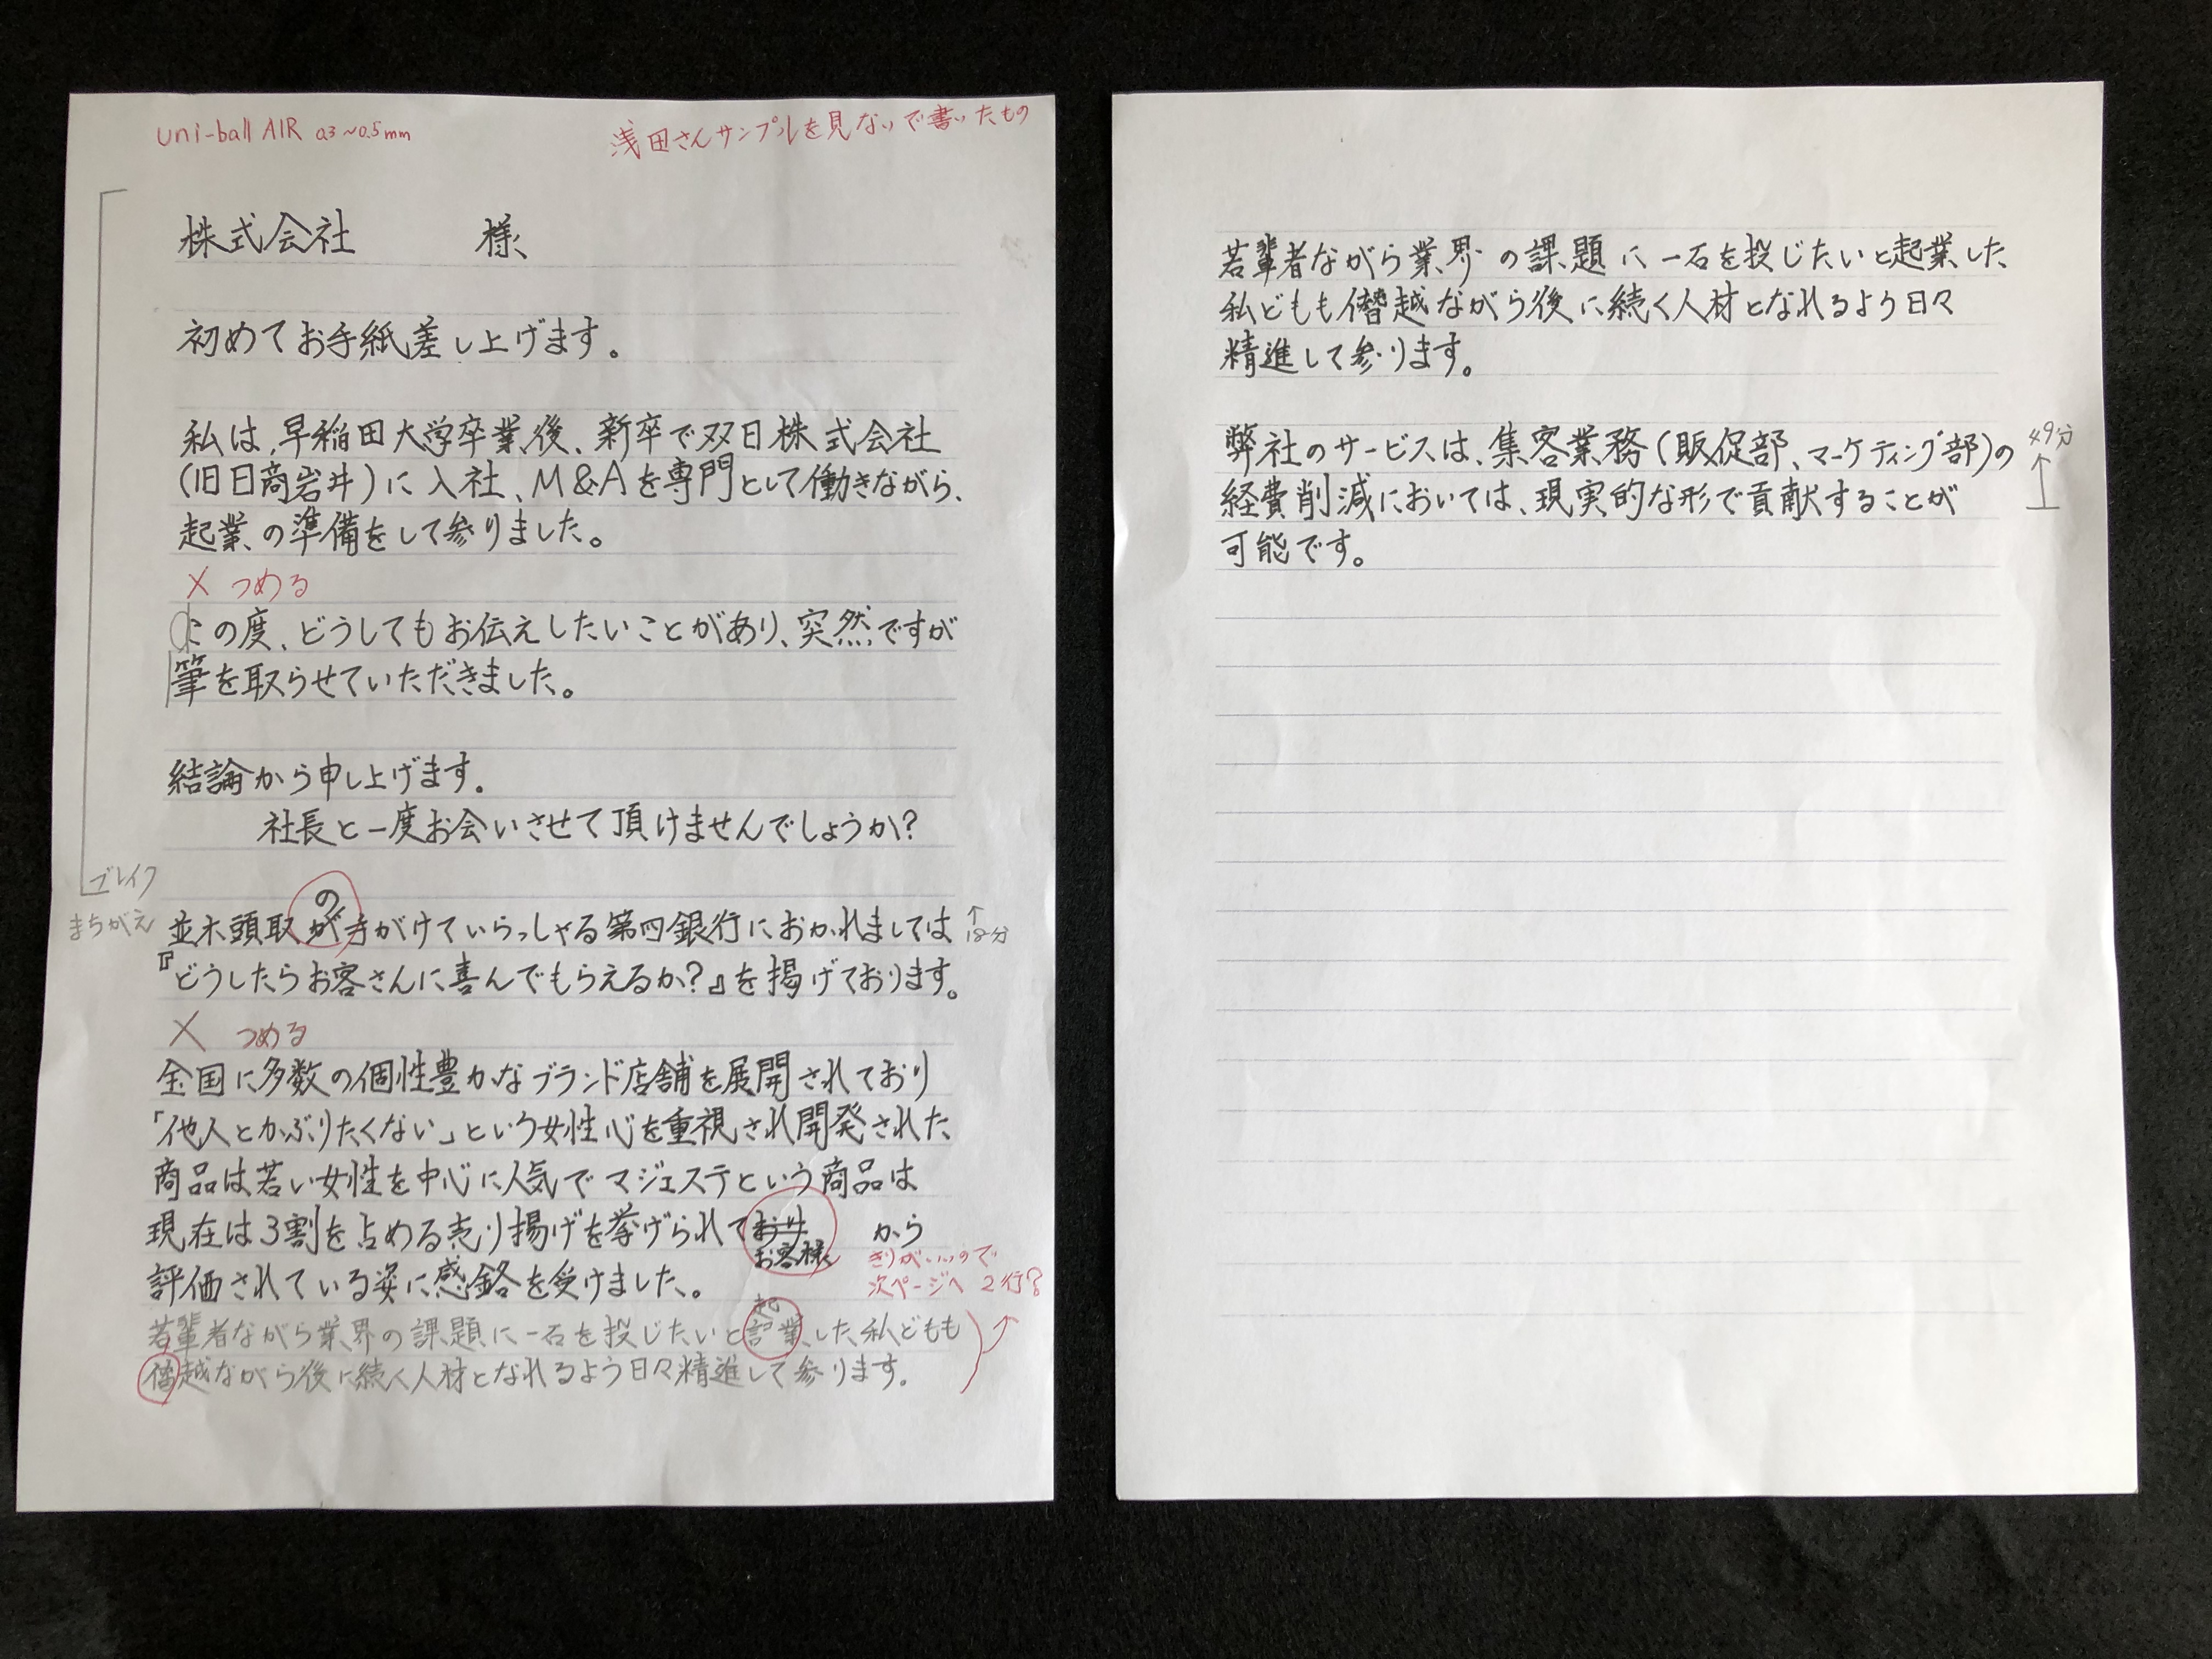 uni-ball AIR 0.3~0.5mm
浅田さんサンプルを見ないで書いたもの
株式会社 様
初めてお手紙差し上げます。
私は、早稲田大学卒業後、新卒で双日株式会社
(旧日商岩井)に入社、M&Aを専門として働きながら、
起業の準備をして参りました。
× つめる
この度、どうしてもお伝えしたいことがあり、突然ですが
筆を取らせていただきました。
結論から申し上げます。
社長と一度お会いさせて頂けませんでしょうか?
まちがえ
の
並木頭取が手がけていらっしゃる第四銀行におかれましては
↑
18分
『どうしたらお客さんに喜んでもらえるか?』を掲げております。
× つめる
全国に多数の個性豊かなブランド店舗を展開されており
「他人とかぶりたくない」という女性心を重視され開発された
商品は若い女性を中心に人気でマジェステという商品は
現在は3割を占める売り揚げを挙げられておりお客様から
評価されている姿に感銘を受けました。
きりがいいので
次ページへ 2行?
起
若輩者ながら業界の課題に一石を投じたいと業した私どもも
僭越ながら後に続く人材となれるよう日々精進して参ります。
若輩者ながら業界の課題に一石を投じたいと起業した
私どもも僭越ながら後に続く人材となれるよう日々
精進して参ります。
弊社のサービスは、集客業務(販促部、マーケティング部)の
49分
経費削減においては、現実的な形で貢献することが
可能です。